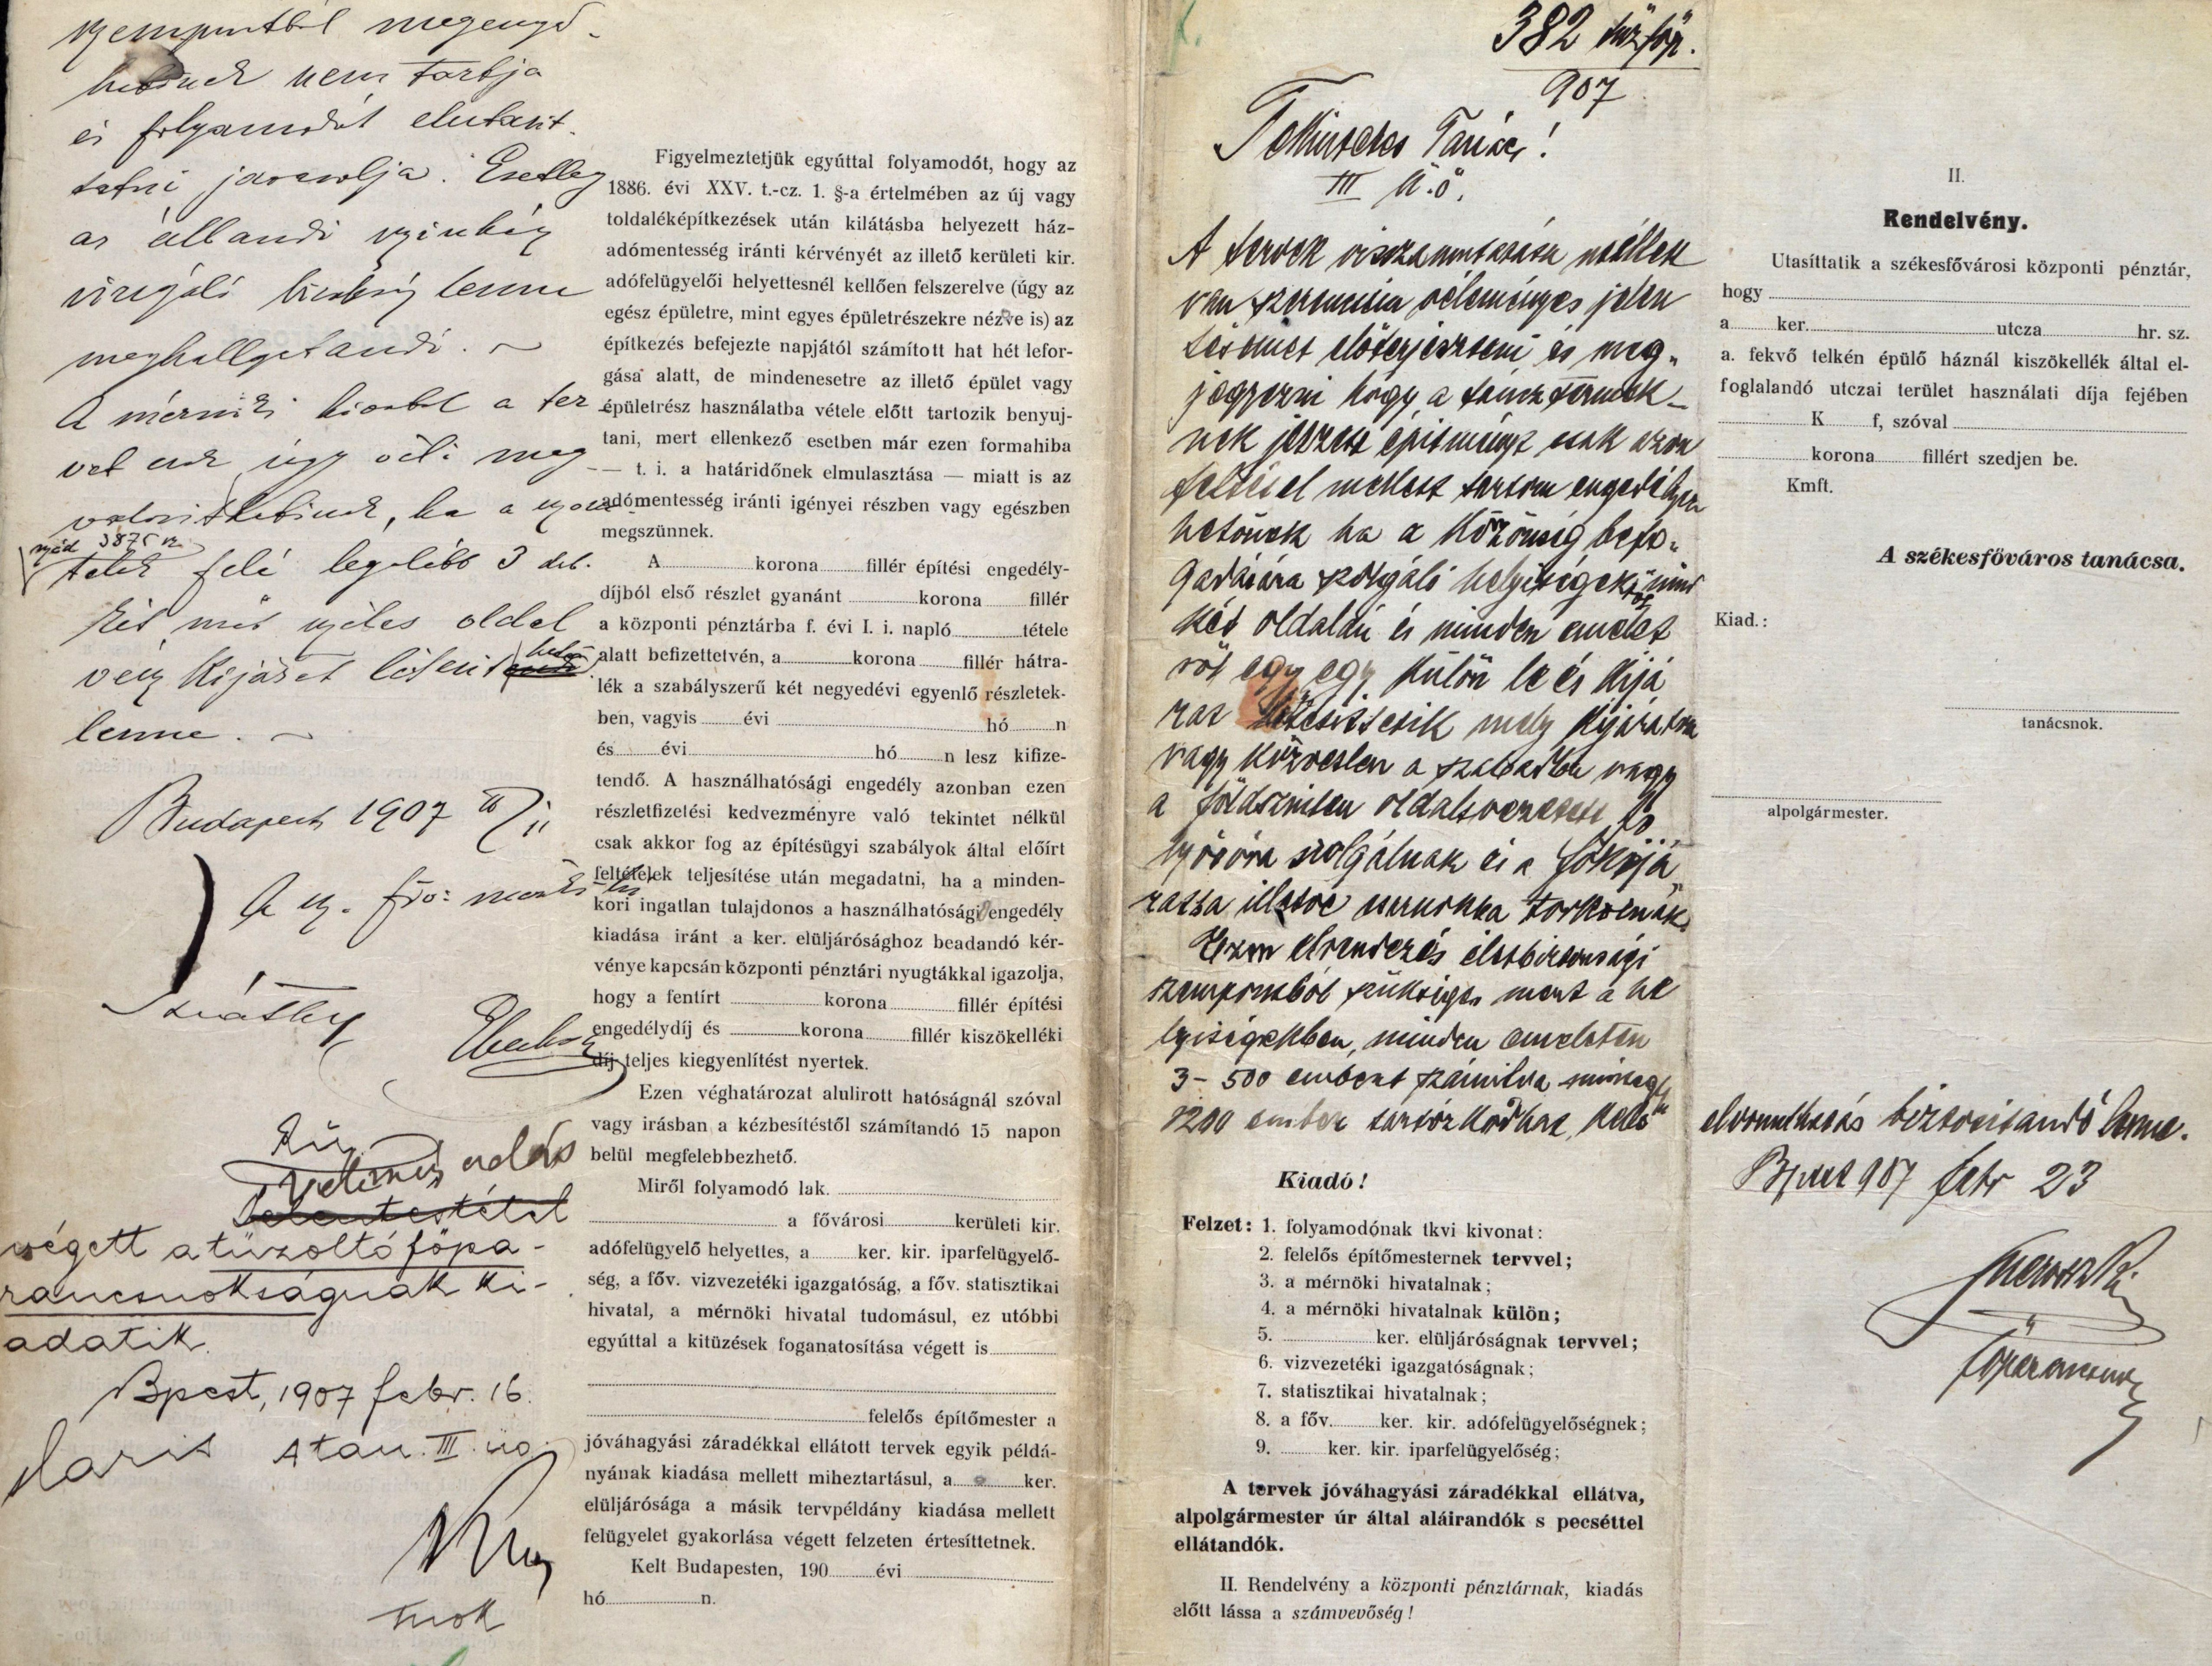 szempontból megenged-
hetőnek nem tartja
és folyamodót elutasít-
tatni javasolja. Esetleg
az állandó színház
vizsgáló bizottság lenne
meghallgatandó. ~
A mérnöki hivatal a ter-
vet csak úgy véli meg-
valósíthatónak, ha a
3875
telek felé legalább 3 drb.
két mét széles oldal
vény kijárat létesít ható
lenne. ~
Budapest 1907
A sz. főv:
végett a tűzoltó főpa-
rancsnokságnak ki-
adatik.
Bpest, 1907 febr. 16.
A tan. III. üo.
Figyelmeztetjük egyúttal folyamodót, hogy az
1886. évi XXV. t.-cz. 1. §-a értelmében az új vagy
toldaléképítkezések után kilátásba helyezett ház-
adómentesség iránti kérvényét az illető kerületi kir.
adófelügyelői helyettesnél kellően felszerelve (úgy az
egész épületre, mint egyes épületrészekre nézve is) az
építkezés befejezte napjától számított hat hét lefor-
gása alatt, de mindenesetre az illető épület vagy
épületrész használatba vétele előtt tartozik benyuj-
tani, mert ellenkező esetben már ezen formahiba
— t. i. a határidőnek elmulasztása — miatt is az
adómentesség iránti igényei részben vagy egészben
megszünnek.
A korona fillér építési engedély-
díjból első részlet gyanánt korona fillér
a központi pénztárba f. évi I. i. napló tétele
alatt befizettetvén, a korona fillér hátra-
lék a szabályszerű két negyedévi egyenlő részletek-
ben, vagyis évi hó n
és évi hó n lesz kifize-
tendő. A használhatósági engedély azonban ezen
részletfizetési kedvezményre való tekintet nélkül
csak akkor fog az építésügyi szabályok által előírt
feltételek teljesítése után megadatni, ha a minden-
kori ingatlan tulajdonos a használhatósági engedély
kiadása iránt a ker. elüljárósághoz beadandó kér-
vénye kapcsán központi pénztári nyugtákkal igazolja,
hogy a fentírt korona fillér építési
engedélydíj és korona fillér kiszökelléki
díj teljes kiegyenlítést nyertek.
Ezen véghatározat alulirott hatóságnál szóval
vagy irásban a kézbesítéstől számítandó 15 napon
belül megfelebbezhető.
Miről folyamodó lak.
a fővárosi kerületi kir.
adófelügyelő helyettes, a ker. kir. iparfelügyelő-
ség, a főv. vizvezetéki igazgatóság, a főv. statisztikai
hivatal, a mérnöki hivatal tudomásul, ez utóbbi
egyúttal a kitüzések foganatosítása végett is
felelős építőmester a
jóváhagyási záradékkal ellátott tervek egyik példá-
nyának kiadása mellett miheztartásul, a ker.
elüljárósága a másik tervpéldány kiadása mellett
felügyelet gyakorlása végett felzeten értesíttetnek.
Kelt Budapesten, 190 évi
hó n.
382 tűz főp.
907
Tekintetes Tanács!
III Ü.o.
A tervek visszamutatása mellett
van szerencsém véleményes jelen
tésemet előterjeszteni és meg-
jegyezni hogy a táncztermek-
nek jelzett építményt csak azon
feltétel mellett tartom engedélyez
hetőnek ha a közönség befo-
gadására szolgáló helyiségektől mind
két oldalán és minden emelet
ről egy egy külön le és kijá
rat létesíttetik mely kijáratok
vagy közvetlen a szabadba vagy
a földszinten oldalt vezetett fo
lyosóra szolgálnak és a főkijá
ratba illetve torkolnak.
Ezen elrendezés életbiztonsági
szempontból szükséges mert a he
lyiségekben, minden emeleten
3-500 embert számítva mintegy
1200 ember tartózkodhat, kellő
elvonulhatás biztosítandó lenne.
Bpest 907 febr 23
főparancsnok
Kiadó!
Felzet: 1. folyamodónak tkvi kivonat:
2. felelős építőmesternek tervvel;
3. a mérnöki hivatalnak;
4. a mérnöki hivatalnak külön;
5. ker. elüljáróságnak tervvel;
6. vizvezetéki igazgatóságnak;
7. statisztikai hivatalnak;
8. a főv. ker. kir. adófelügyelőségnek;
9. ker. kir. iparfelügyelőség;
A tervek jóváhagyási záradékkal ellátva,
alpolgármester úr által aláirandók s pecséttel
ellátandók.
II. Rendelvény a központi pénztárnak, kiadás
előtt lássa a számvevőség!
II.
Rendelvény.
Utasíttatik a székesfővárosi központi pénztár,
hogy
a ker. utcza hr. sz.
a. fekvő telkén épülő háznál kiszökellék által el-
foglalandó utczai terület használati díja fejében
K f, szóval
korona fillért szedjen be.
Kmft.
A székesfőváros tanácsa.
Kiad.:
tanácsnok.
alpolgármester.